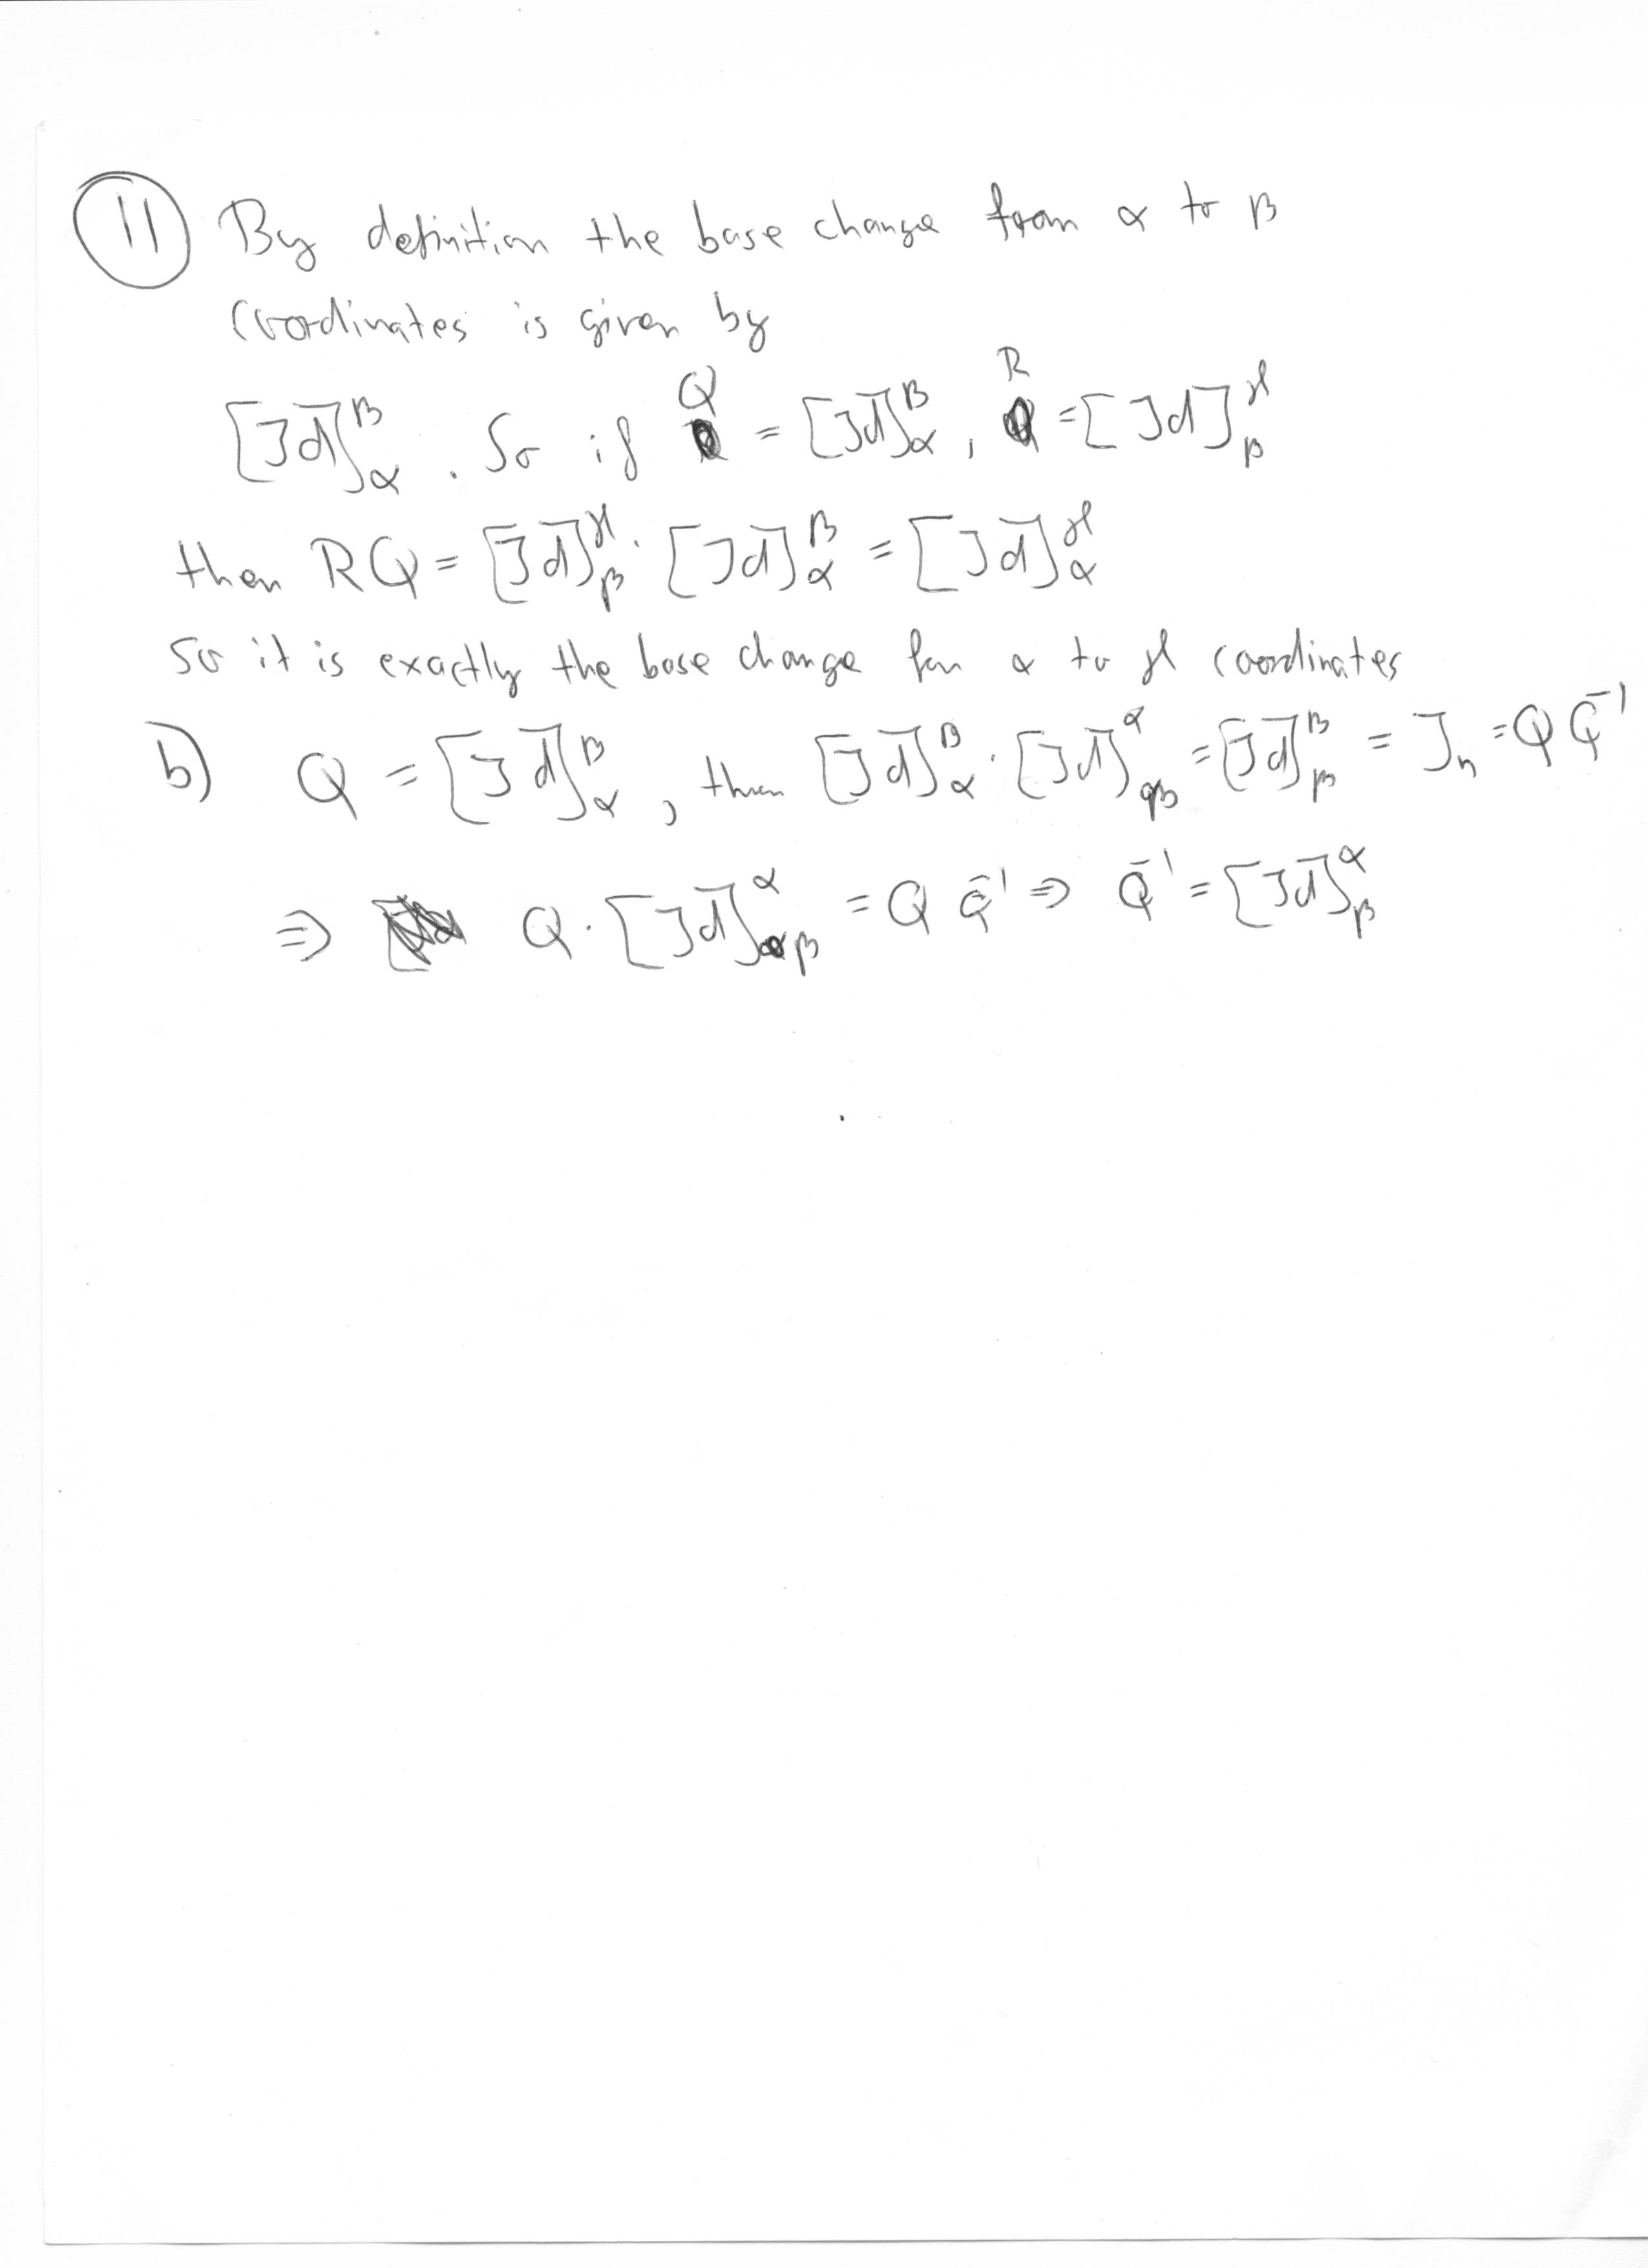 11 By definition the base change from α to β
coordinates is given by
[Id]_α^β . So if Q = [Id]_α^β , R = [Id]_β^γ
then RQ = [Id]_β^γ · [Id]_α^β = [Id]_α^γ
So it is exactly the base change for α to γ coordinates
b) Q = [Id]_α^β , then [Id]_α^β · [Id]_β^α = [Id]_β^β = I_n = Q Q^-1
⇒ Q · [Id]_β^α = Q Q^-1 ⇒ Q^-1 = [Id]_β^α